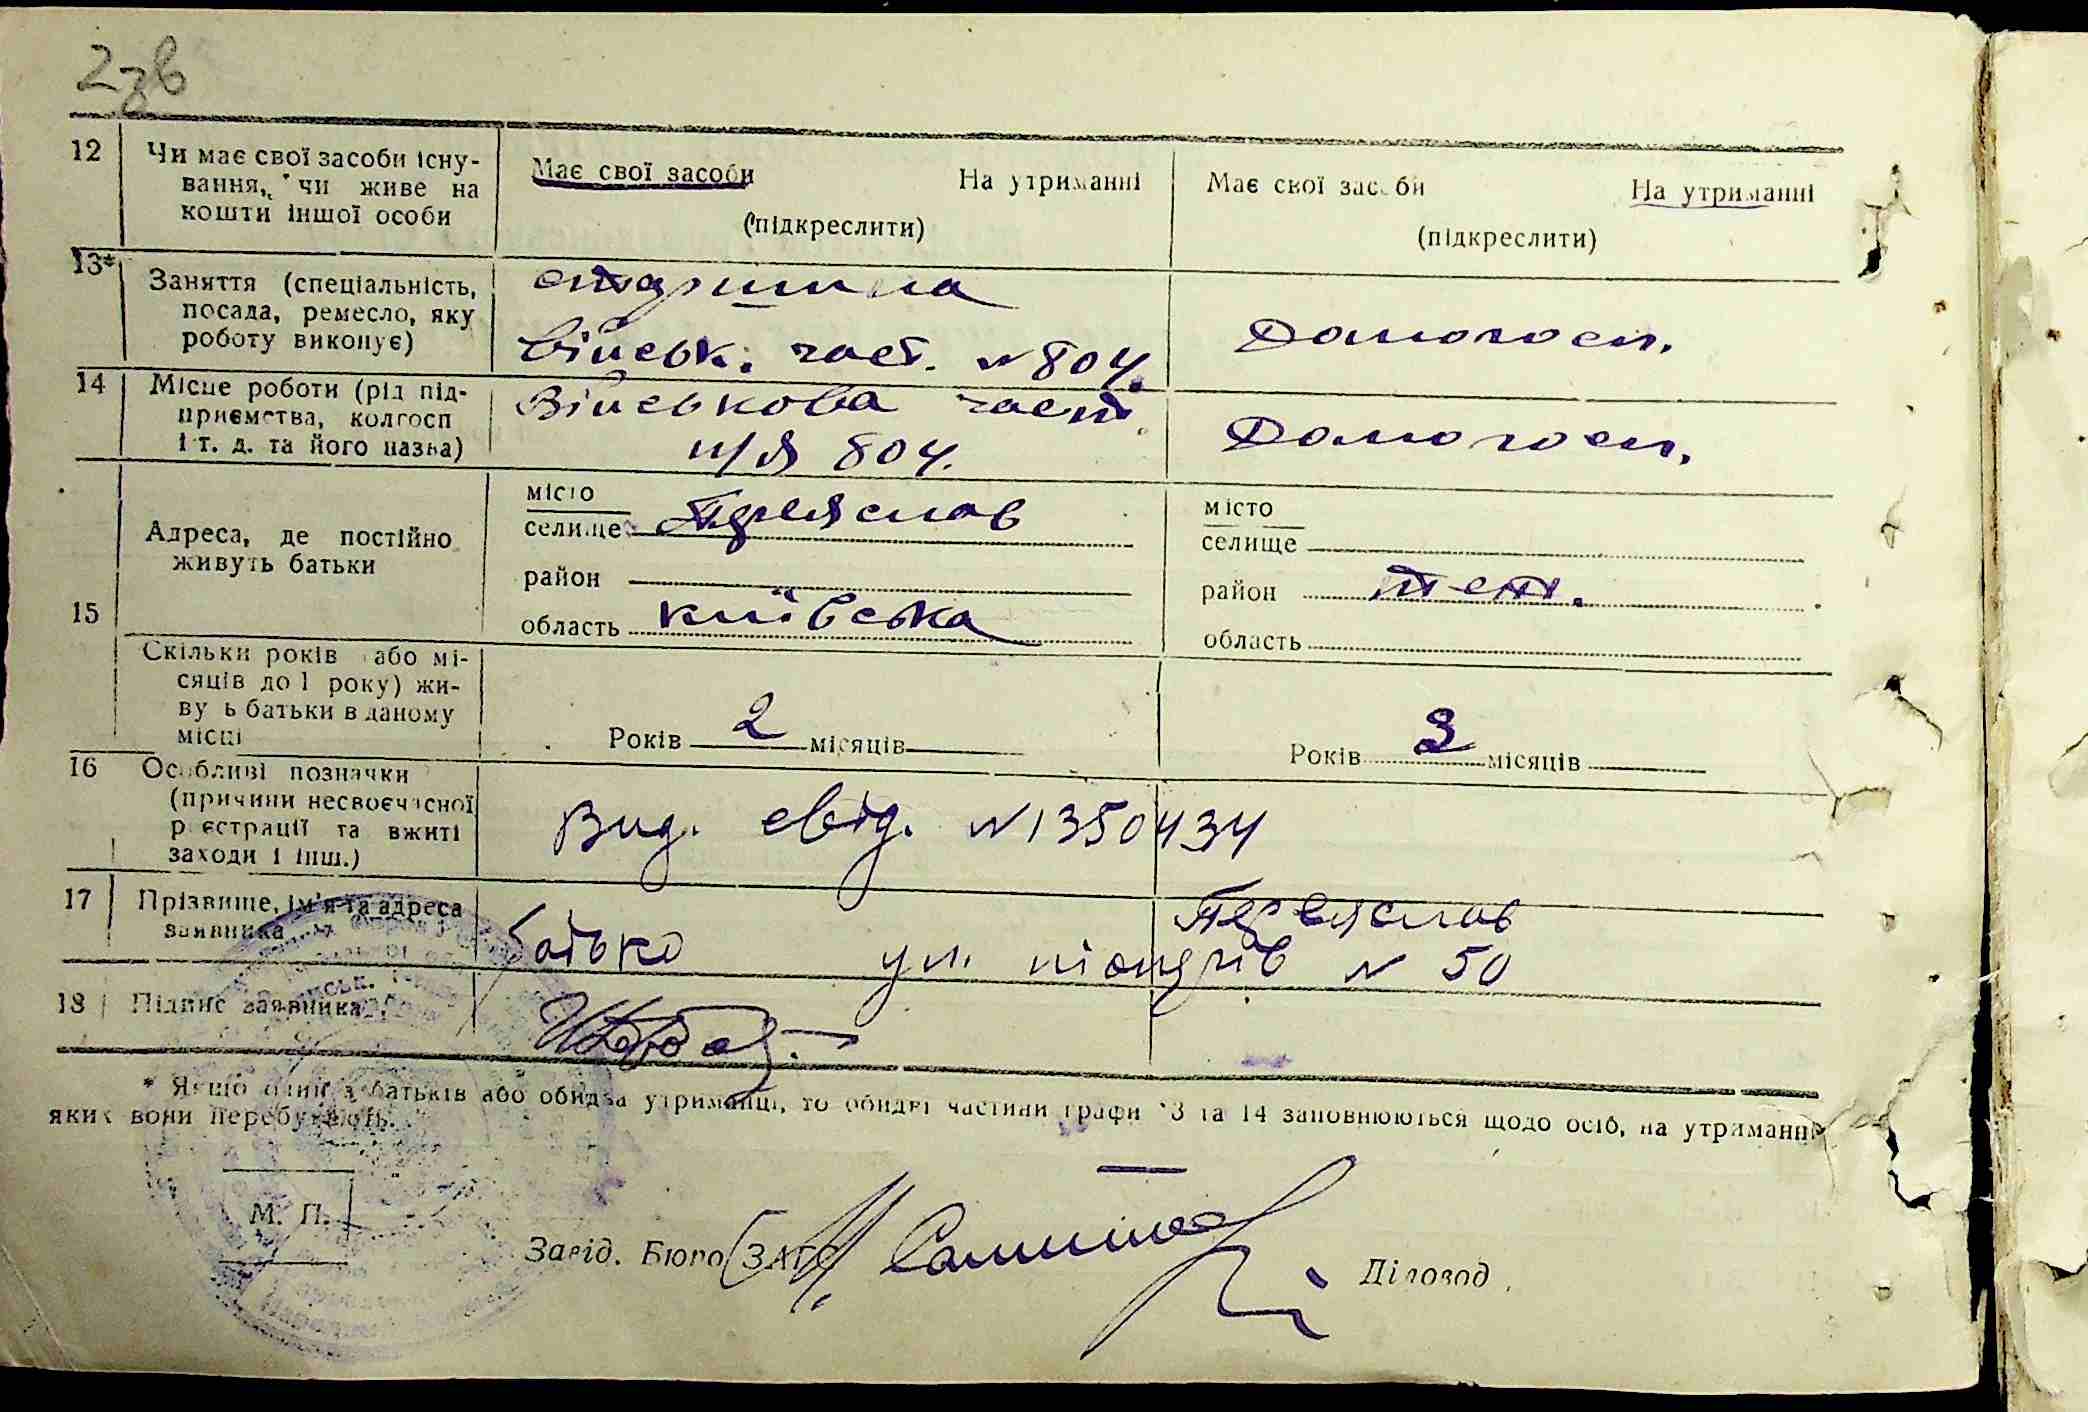 2зв
12 Чи має свої засоби існу-
вання, чи живе на
кошти іншої особи
Має свої засоби На утриманні
(підкреслити)
Має свої засоби На утриманні
(підкреслити)
13* Заняття (спеціальність,
посада, ремесло, яку
роботу виконує)
старшина
Військ. част. №804.
Домогосп.
14 Місце роботи (рід під-
приємства, колгосп
і т. д. та його назва)
Військова част.
п/я 804.
Домогосп.
15 Адреса, де постійно
живуть батьки
місто
селище Переяслав
район
область київська
місто
селище
район теж.
область
Скільки років або мі-
сяців до 1 року) жи-
вуь батьки в даному
місці
Років 2 місяців
Років 3 місяців
16 Особливі позначки
(причини несвоєчасної
реєстрації та вжиті
заходи і інш.)
Вид. свід. №1350434
17 Прізвище, ім'я та адреса
заявника
батько Переяслав
ул. піонерів № 50
18 Підпис заявника
* Якщо один з батьків або обидва утриманці, то обидві частини графи 13 та 14 заповнюються щодо осіб, на утриманні
яких вони перебувають.
М. П.
Завід. Бюро ЗАГС Діловод